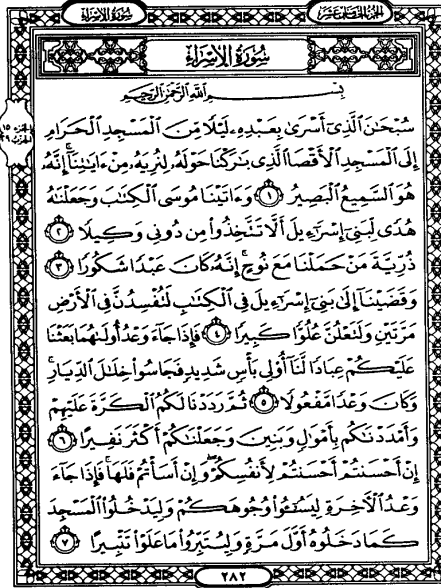 سُورَةُ الإِسْرَاءِ
الجزء الخامس عشر
سُورَةُ الإِسْرَاءِ
بِسْمِ اللَّهِ الرَّحْمَٰنِ الرَّحِيمِ
سُبْحَٰنَ ٱلَّذِىٓ أَسْرَىٰ بِعَبْدِهِۦ لَيْلًا مِّنَ ٱلْمَسْجِدِ ٱلْحَرَامِ
إِلَى ٱلْمَسْجِدِ ٱلْأَقْصَا ٱلَّذِى بَٰرَكْنَا حَوْلَهُۥ لِنُرِيَهُۥ مِنْ ءَايَٰتِنَآ إِنَّهُۥ
هُوَ ٱلسَّمِيعُ ٱلْبَصِيرُ ١ وَءَاتَيْنَا مُوسَى ٱلْكِتَٰبَ وَجَعَلْنَٰهُ
هُدًى لِّبَنِىٓ إِسْرَٰٓءِيلَ أَلَّا تَتَّخِذُوا۟ مِن دُونِى وَكِيلًا ٢
ذُرِّيَّةَ مَنْ حَمَلْنَا مَعَ نُوحٍ إِنَّهُۥ كَانَ عَبْدًا شَكُورًا ٣
وَقَضَيْنَآ إِلَىٰ بَنِىٓ إِسْرَٰٓءِيلَ فِى ٱلْكِتَٰبِ لَتُفْسِدُنَّ فِى ٱلْأَرْضِ
مَرَّتَيْنِ وَلَتَعْلُنَّ عُلُوًّا كَبِيرًا ٤ فَإِذَا جَآءَ وَعْدُ أُولَىٰهُمَا بَعَثْنَا
عَلَيْكُمْ عِبَادًا لَّنَآ أُو۟لِى بَأْسٍ شَدِيدٍ فَجَاسُوا۟ خِلَٰلَ ٱلدِّيَارِ
وَكَانَ وَعْدًا مَّفْعُولًا ٥ ثُمَّ رَدَدْنَا لَكُمُ ٱلْكَرَّةَ عَلَيْهِمْ
وَأَمْدَدْنَٰكُم بِأَمْوَٰلٍ وَبَنِينَ وَجَعَلْنَٰكُمْ أَكْثَرَ نَفِيرًا ٦
إِنْ أَحْسَنتُمْ أَحْسَنتُمْ لِأَنفُسِكُمْ وَإِنْ أَسَأْتُمْ فَلَهَا فَإِذَا جَآءَ
وَعْدُ ٱلْءَاخِرَةِ لِيَسُۥٓـُٔوا۟ وُجُوهَكُمْ وَلِيَدْخُلُوا۟ ٱلْمَسْجِدَ
كَمَا دَخَلُوهُ أَوَّلَ مَرَّةٍ وَلِيُتَبِّرُوا۟ مَا عَلَوْا۟ تَتْبِيرًا ٧
٢٨٢